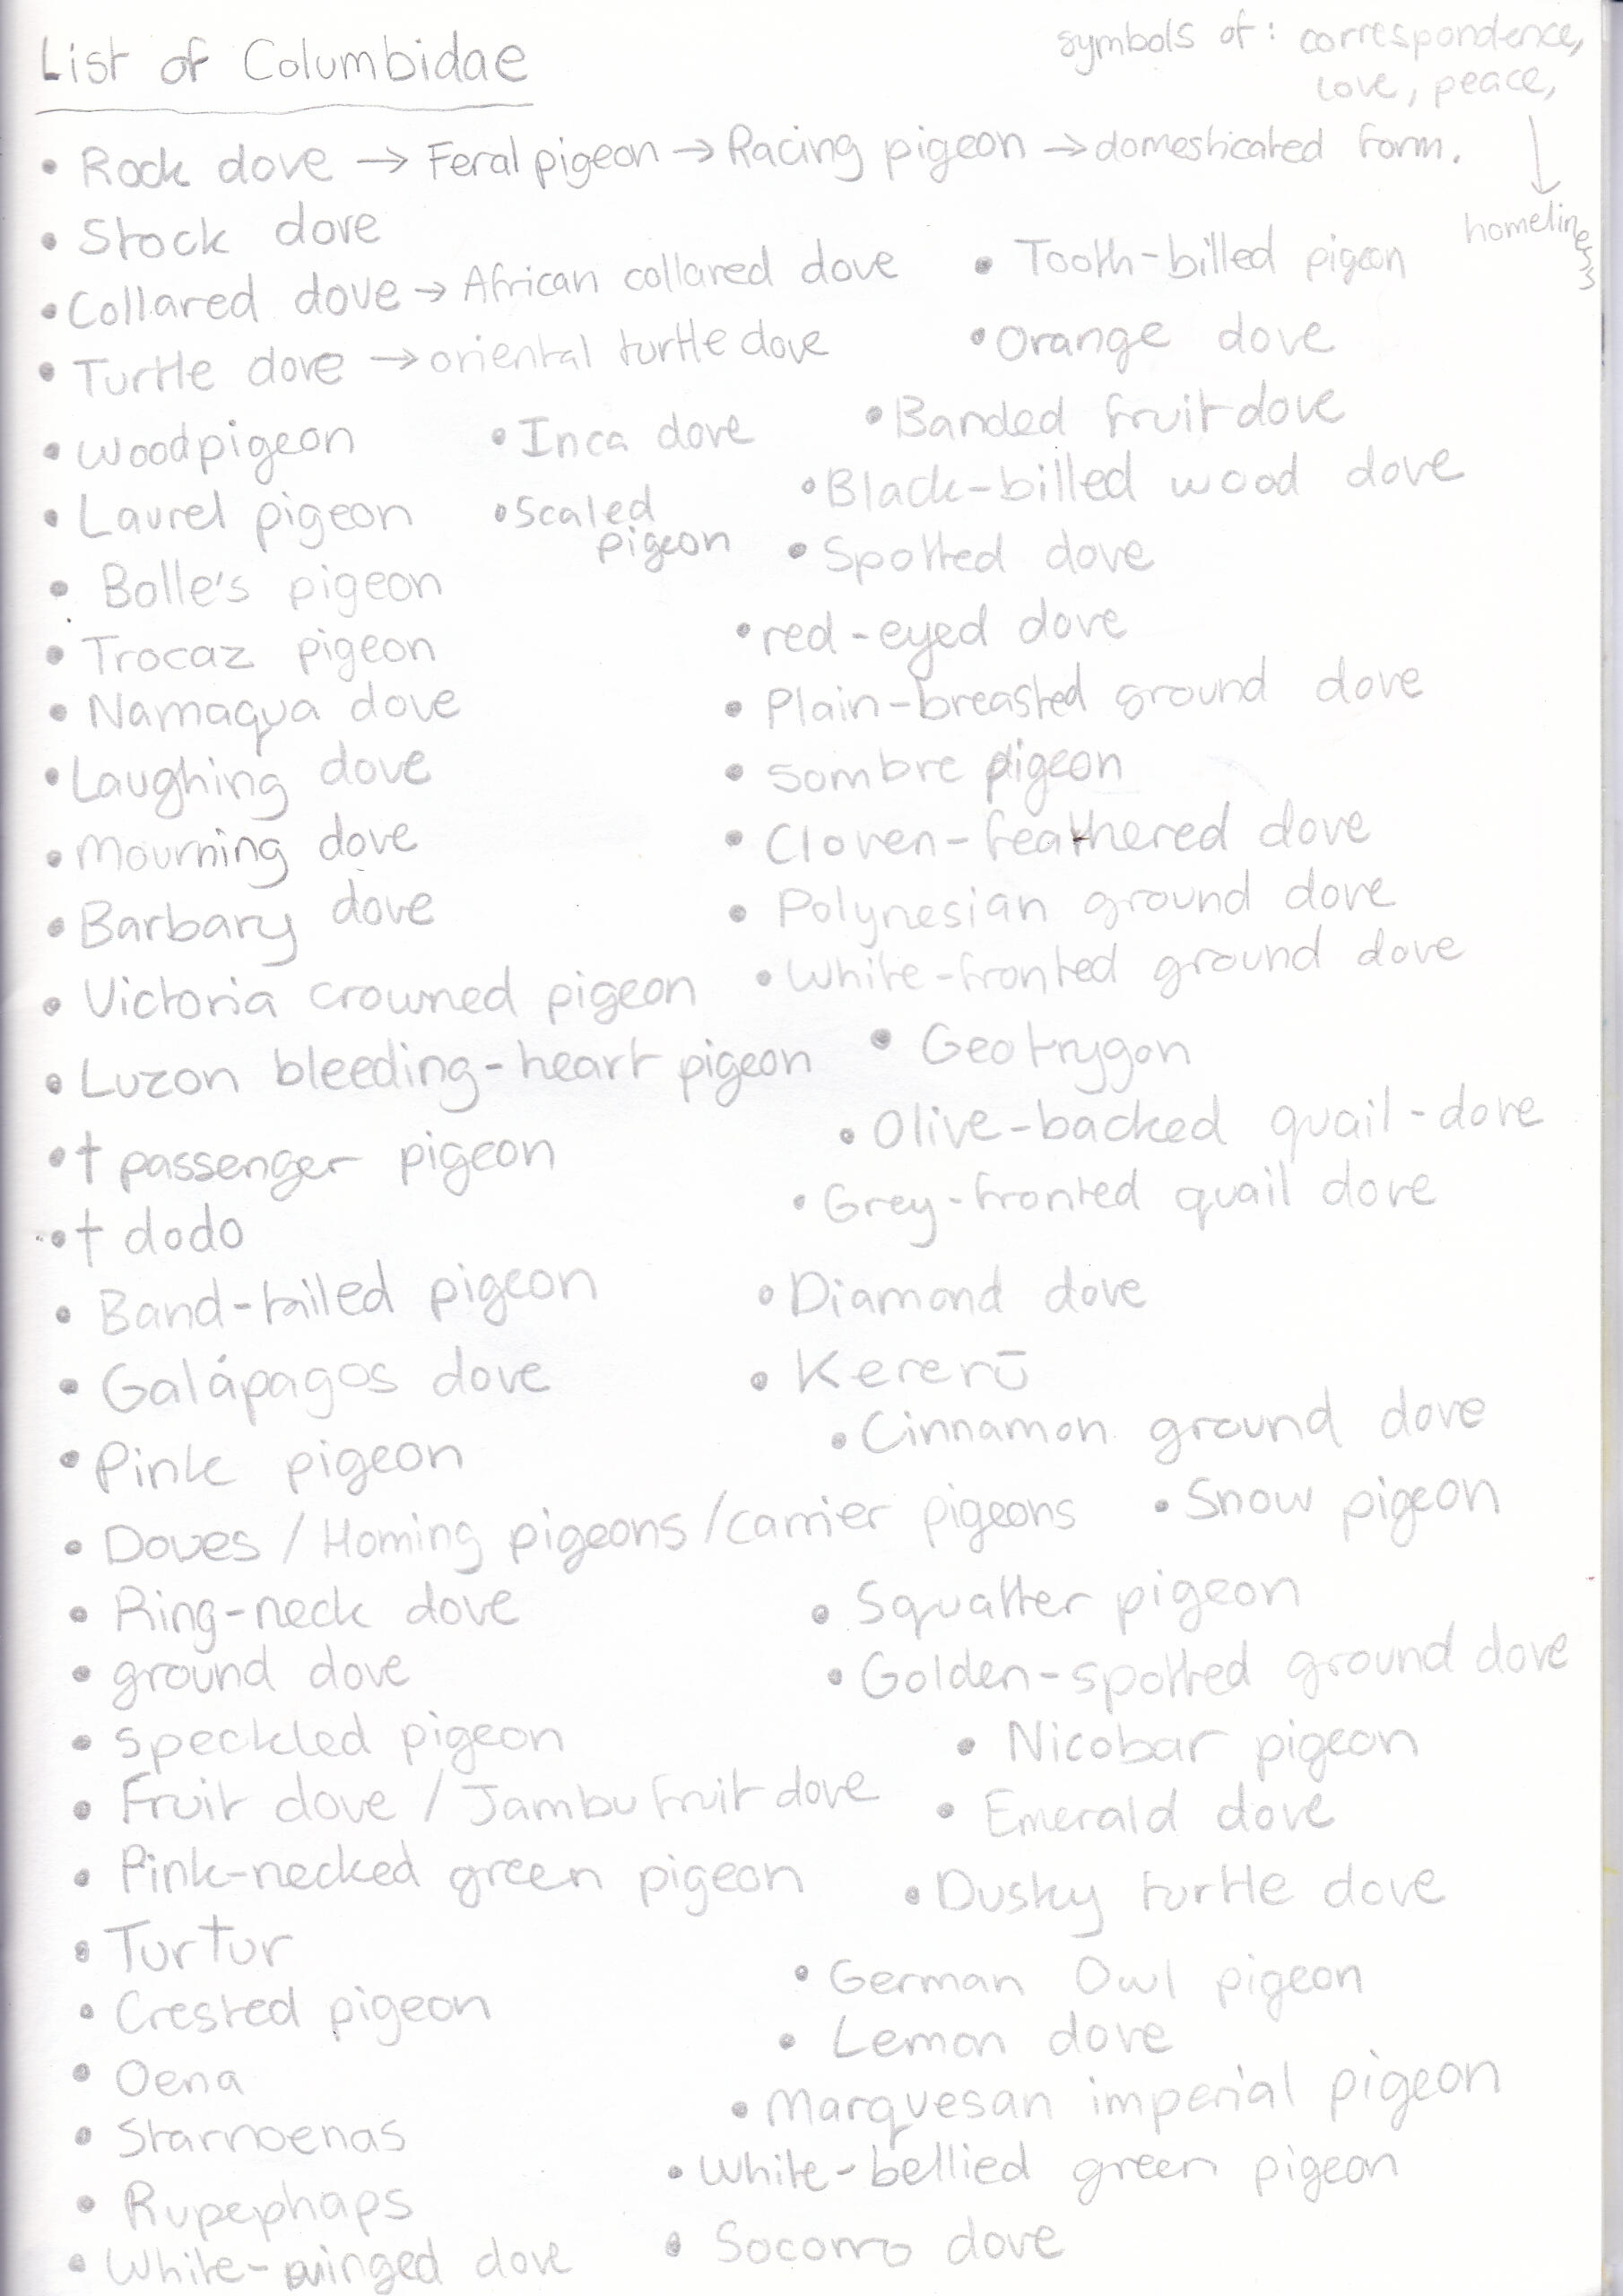 List of Columbidae
symbols of: correspondence,
love, peace,
homeliness
• Rock dove → Feral pigeon → Racing pigeon → domesticated form.
• Stock dove
• Collared dove → African collared dove
• Turtle dove → oriental turtle dove
• Woodpigeon
• Laurel pigeon
• Bolle's pigeon
• Trocaz pigeon
• Namaqua dove
• Laughing dove
• Mourning dove
• Barbary dove
• Victoria crowned pigeon
• Luzon bleeding-heart pigeon
• † passenger pigeon
• † dodo
• Band-tailed pigeon
• Galápagos dove
• Pink pigeon
• Doves / Homing pigeons / carrier pigeons
• Ring-neck dove
• ground dove
• Speckled pigeon
• Fruit dove / Jambu fruit dove
• Pink-necked green pigeon
• Turtur
• Crested pigeon
• Oena
• Starnoenas
• Rupephaps
• White-winged dove
• Inca dove
• Scaled
pigeon
• Tooth-billed pigeon
• Orange dove
• Banded fruit dove
• Black-billed wood dove
• Spotted dove
• red-eyed dove
• Plain-breasted ground dove
• Sombre pigeon
• Cloven-feathered dove
• Polynesian ground dove
• White-fronted ground dove
• Geotrygon
• Olive-backed quail-dove
• Grey-fronted quail dove
• Diamond dove
• Kererū
• Cinnamon ground dove
• Snow pigeon
• Squatter pigeon
• Golden-spotted ground dove
• Nicobar pigeon
• Emerald dove
• Dusky turtle dove
• German Owl pigeon
• Lemon dove
• Marquesan imperial pigeon
• White-bellied green pigeon
• Socorro dove